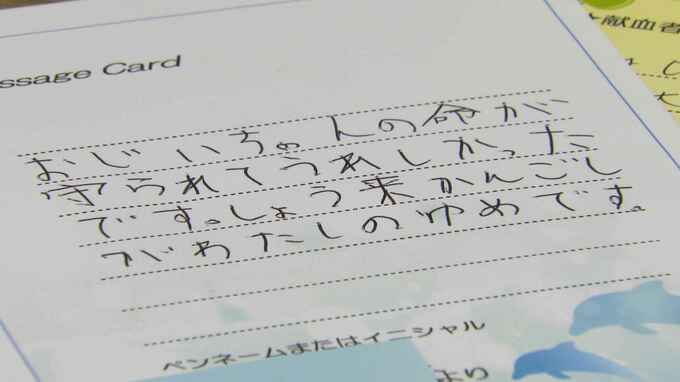 ssage Card
献血者
おじいちゃんの命が
守られてうれしかった
です。しょう来かんごし
がわたしのゆめです。
ペンネームまたはイニシャル
より